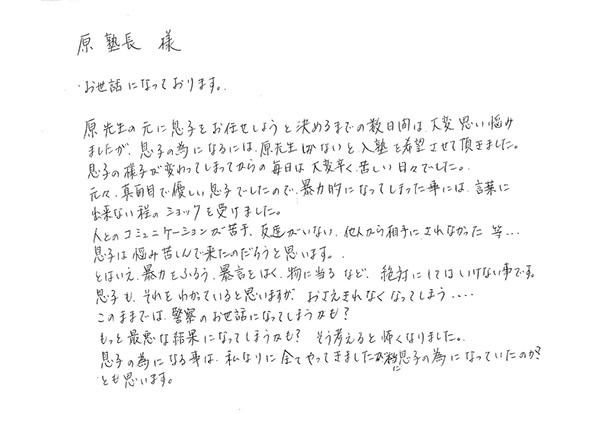 原 塾長 様
・お世話になっております。
原先生の元に息子をお任せしようと決めるまでの数日間は、大変思い悩み
ましたが、息子の為になるには、原先生しかないと、入塾を希望させて頂きました。
息子の様子が変わってしまってからの毎日は、大変辛く、苦しい日々でした。
元々、真面目で優しい息子でしたので、暴力的になってしまった事には、言葉に
出来ない程のショックを受けました。
人とのコミュニケーションが苦手、友達がいない、他人から相手にされなかった 等…
息子は悩み苦しんで来たのだろうと思います。
とはいえ、暴力をふるう、暴言をはく、物に当るなど、絶対にしてはいけない事です。
息子も、それをわかっていると思いますが、おさえきれなくなってしまう‥‥
このままでは、警察のお世話になってしまうかも?
もっと最悪な結果になってしまうかも? そう考えると怖くなりました。
息子の為になる事は、私なりに全てやってきましたが、息子の為になっていたのか?
とも思います。